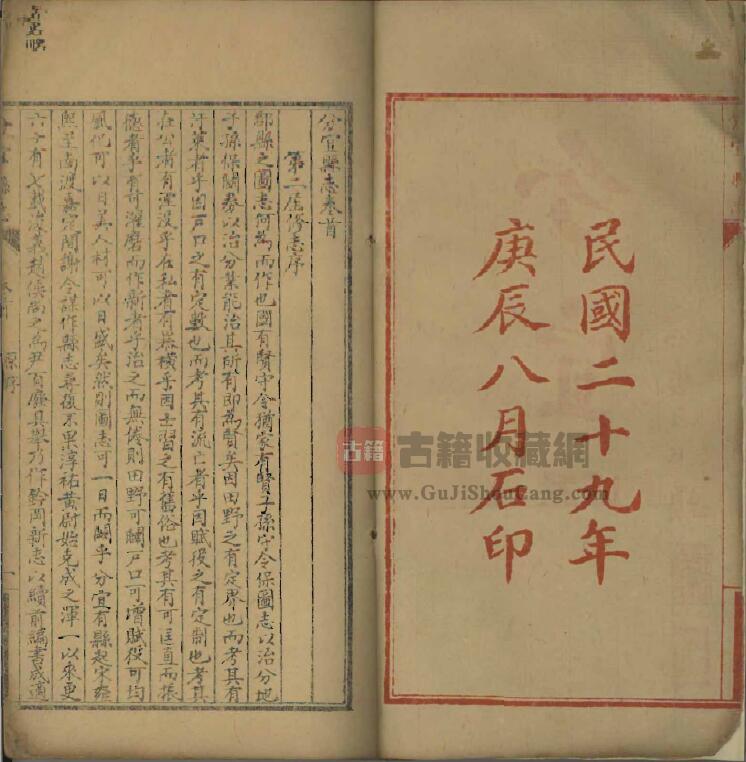 民國二十九年
庚辰八月石印
分宜縣志卷首
第二屆修志序
郡縣之圖志何為而作也國有賢守令猶家有賢子孫守令保圖志以治分地
子孫保關券以治分業能治其所有即為賢矣因田野之有定界也而考其有
汙萊者乎因戶口之有定數也而考其有流亡者乎因賦役之有定制也考其
在公者有湮沒乎在私者有 橫乎因士習之有舊俗也考其有可匡直而振
德者乎有可濯磨而作新者乎治之而無倦則田野可闢戶口可增賦役可均
風化可以日美人材可以日盛矣然則圖志可一日而闕乎分宜有縣起宋雍
熙至南渡嘉定間謝令謀作縣志尋復不果淳祐黃尉始克成之渾一以來更
六十有七載浚儀趙侯尚之為尹百廢具舉乃作鈐岡新志以續前編書成適
古籍
古籍收藏網
www.GuJiShouCang.com